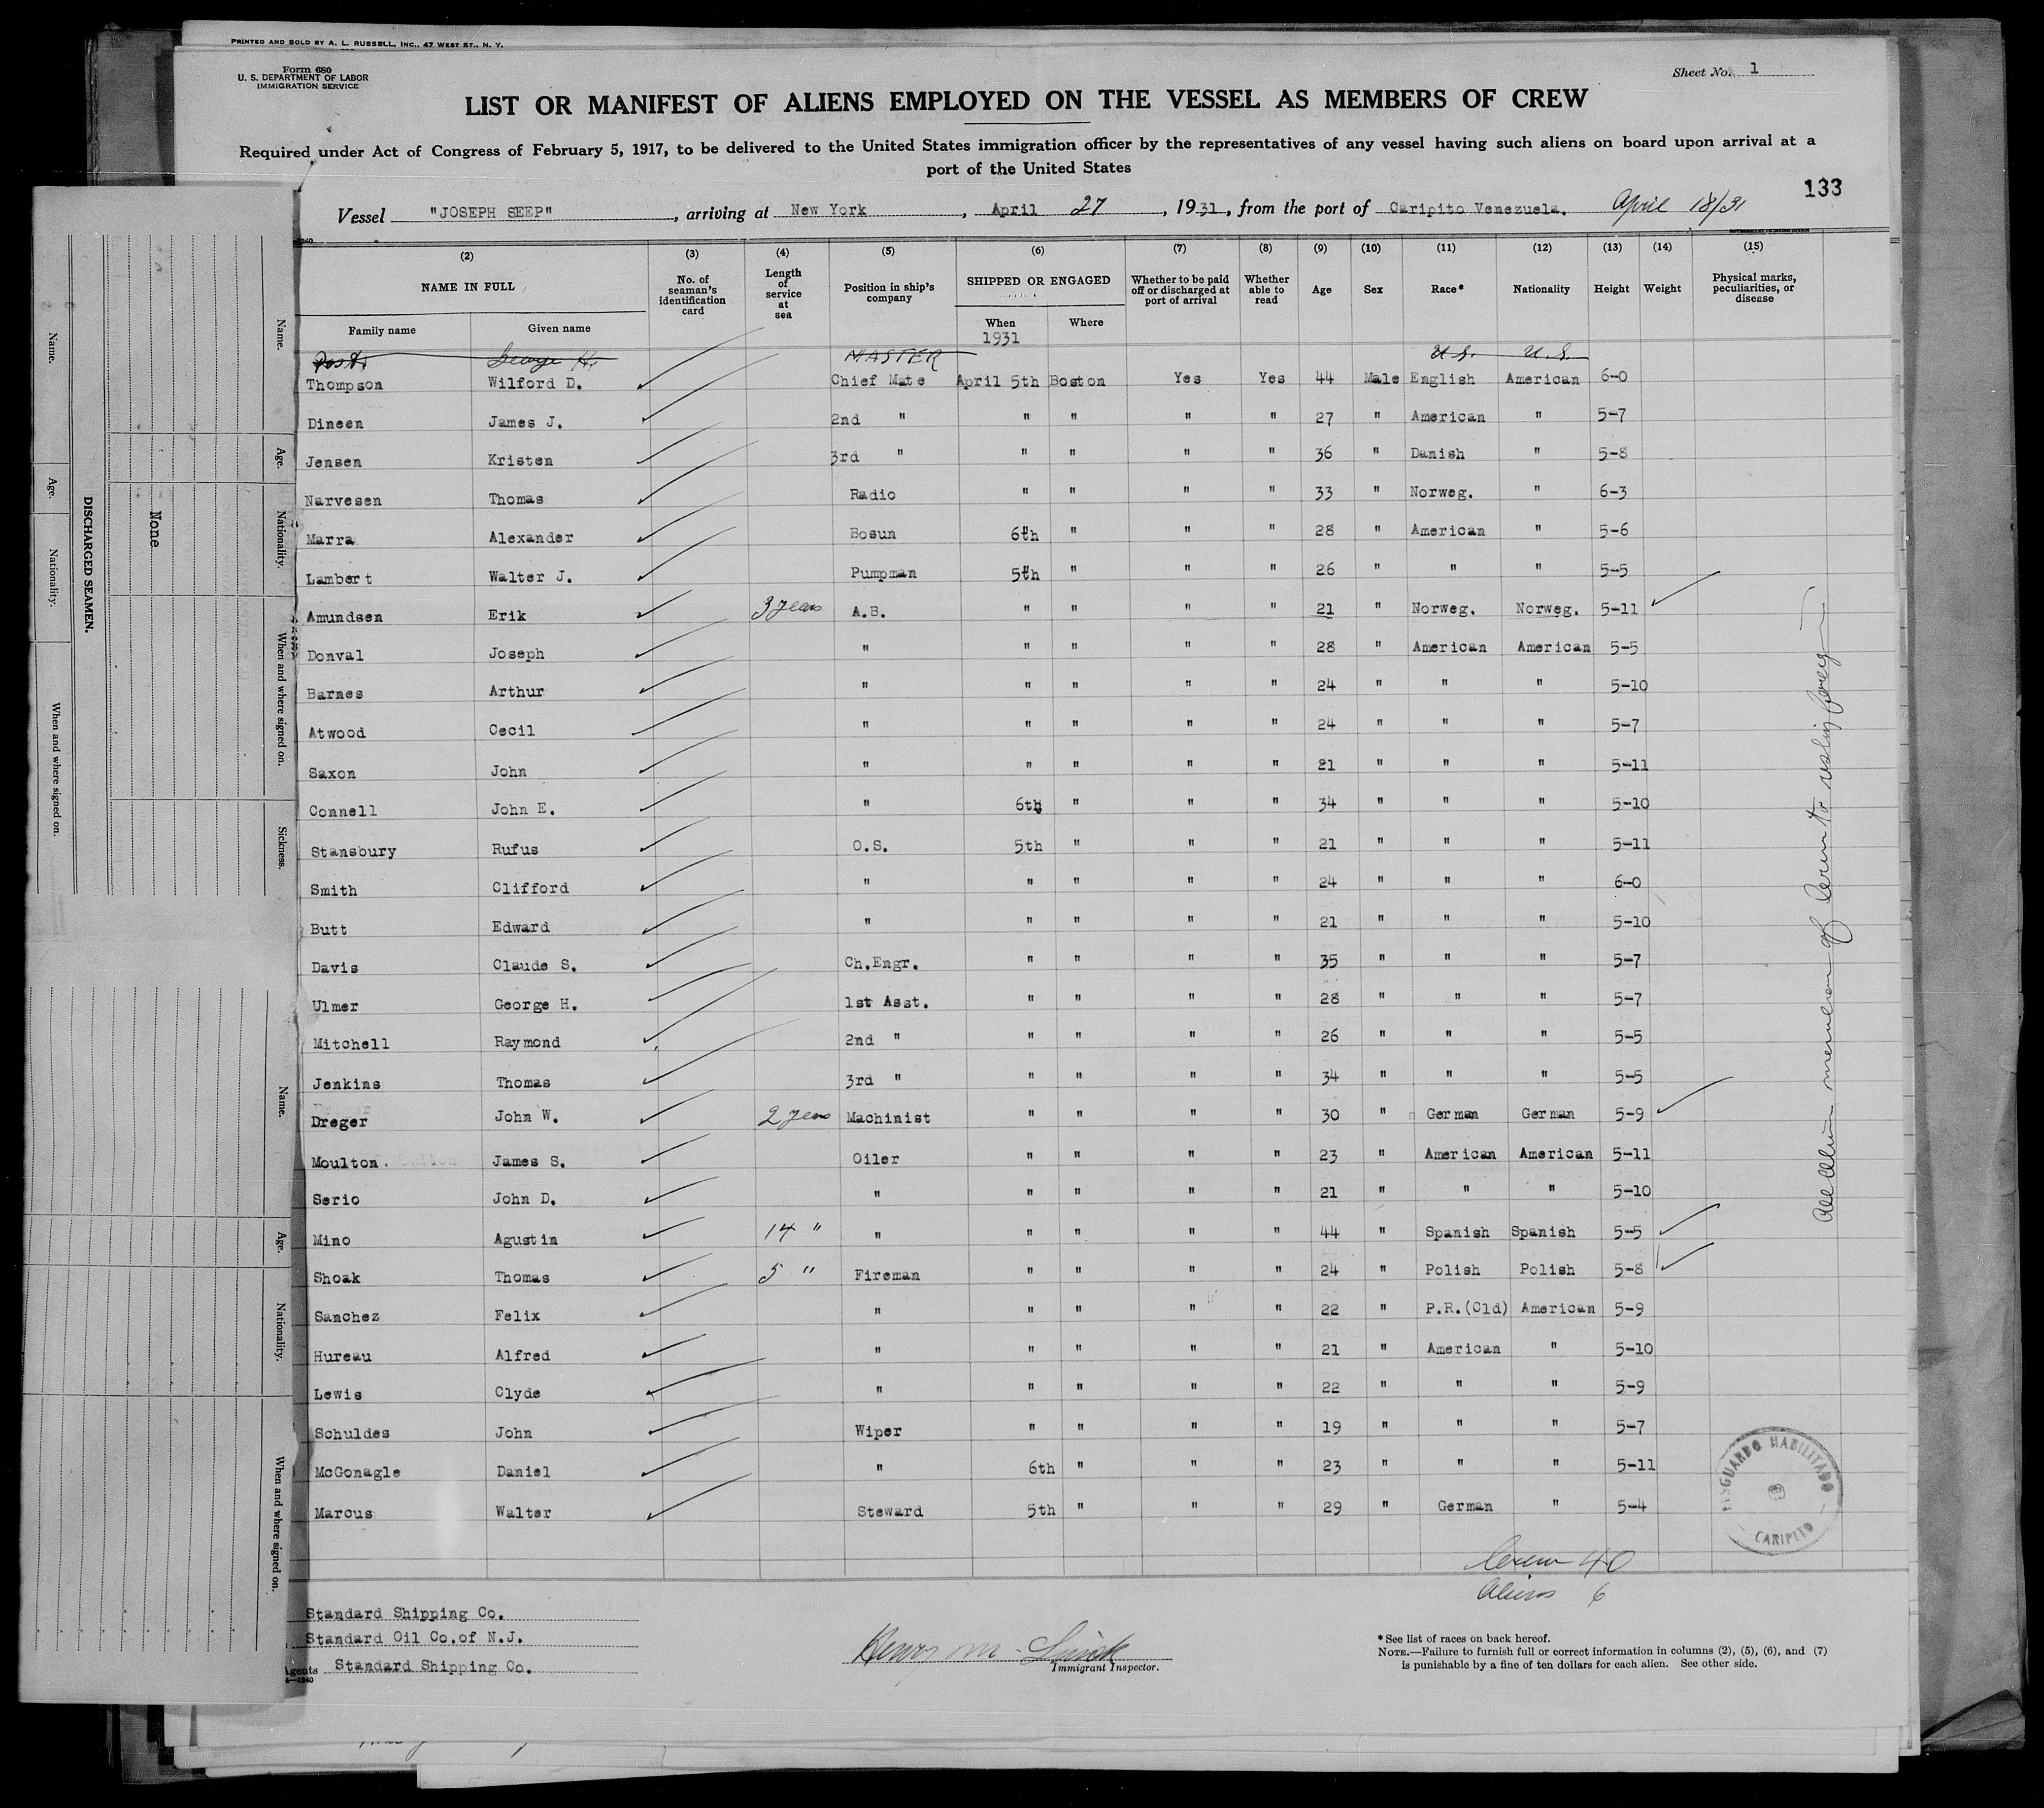 PRINTED AND SOLD BY A. L. RUSSELL, INC., 47 WEST ST., N. Y.
Form 680
U. S. DEPARTMENT OF LABOR
IMMIGRATION SERVICE
Sheet No. 1
LIST OR MANIFEST OF ALIENS EMPLOYED ON THE VESSEL AS MEMBERS OF CREW
Required under Act of Congress of February 5, 1917, to be delivered to the United States immigration officer by the representatives of any vessel having such aliens on board upon arrival at a
port of the United States
133
Vessel "JOSEPH SEEP", arriving at New York, April 27, 1931, from the port of Caripito Venezuela. April 18/31
(2) (3) (4) (5) (6) (7) (8) (9) (10) (11) (12) (13) (14) (15)
NAME IN FULL No. of seaman's identification card Length of service at sea Position in ship's company SHIPPED OR ENGAGED Whether to be paid off or discharged at port of arrival Whether able to read Age Sex Race* Nationality Height Weight Physical marks, peculiarities, or disease
Family name Given name When Where
1931
George H. MASTER U.S. U.S.
Thompson Wilford D. Chief Mate April 5th Boston Yes Yes 44 Male English American 6-0
Dineen James J. 2nd " " " " " 27 " American " 5-7
Jensen Kristen 3rd " " " " " 36 " Danish " 5-8
Narvesen Thomas Radio " " " " 33 " Norweg. " 6-3
Marra Alexander Bosun 6th " " " 28 " American " 5-6
Lambert Walter J. Pumpman 5th " " " 26 " " " 5-5
Amundsen Erik 3 years A.B. " " " " 21 " Norweg. Norweg. 5-11
Donval Joseph " " " " " 28 " American American 5-5
Barnes Arthur " " " " " 24 " " " 5-10
Atwood Cecil " " " " " 24 " " " 5-7
Saxon John " " " " " 21 " " " 5-11
Connell John E. " 6th " " " 34 " " " 5-10
Stansbury Rufus O.S. 5th " " " 21 " " " 5-11
Smith Clifford " " " " " 24 " " " 6-0
Butt Edward " " " " " 21 " " " 5-10
Davis Claude S. Ch.Engr. " " " " 35 " " " 5-7
Ulmer George H. 1st Asst. " " " " 28 " " " 5-7
Mitchell Raymond 2nd " " " " " 26 " " " 5-5
Jenkins Thomas 3rd " " " " " 34 " " " 5-5
Dreger John W. 2 years Machinist " " " " 30 " German German 5-9
Moulton James S. Oiler " " " " 23 " American American 5-11
Serio John D. " " " " " 21 " " " 5-10
Mino Agustin 14 " " " " " " 44 " Spanish Spanish 5-5
Shoak Thomas 5 " Fireman " " " " 24 " Polish Polish 5-8
Sanchez Felix " " " " " 22 " P.R.(Cld) American 5-9
Hureau Alfred " " " " " 21 " American " 5-10
Lewis Clyde " " " " " 22 " " " 5-9
Schuldes John Wiper " " " " 19 " " " 5-7
McGonagle Daniel " 6th " " " 23 " " " 5-11
Marcus Walter Steward 5th " " " 29 " German " 5-4
Crew 40
Aliens 6
RESGUARDO HABILITADO
CARIPITO
Standard Shipping Co.
Standard Oil Co.of N.J.
Agents Standard Shipping Co.
Immigrant Inspector.
*See list of races on back hereof.
NOTE.—Failure to furnish full or correct information in columns (2), (5), (6), and (7)
is punishable by a fine of ten dollars for each alien. See other side.
All Alien members of Crew to reship foreign
DISCHARGED SEAMEN.
None
Name.
Age.
Nationality.
When and where signed on.
Name.
Age.
Nationality.
When and where signed on.
Sickness.
Name.
Age.
Nationality.
When and where signed on.